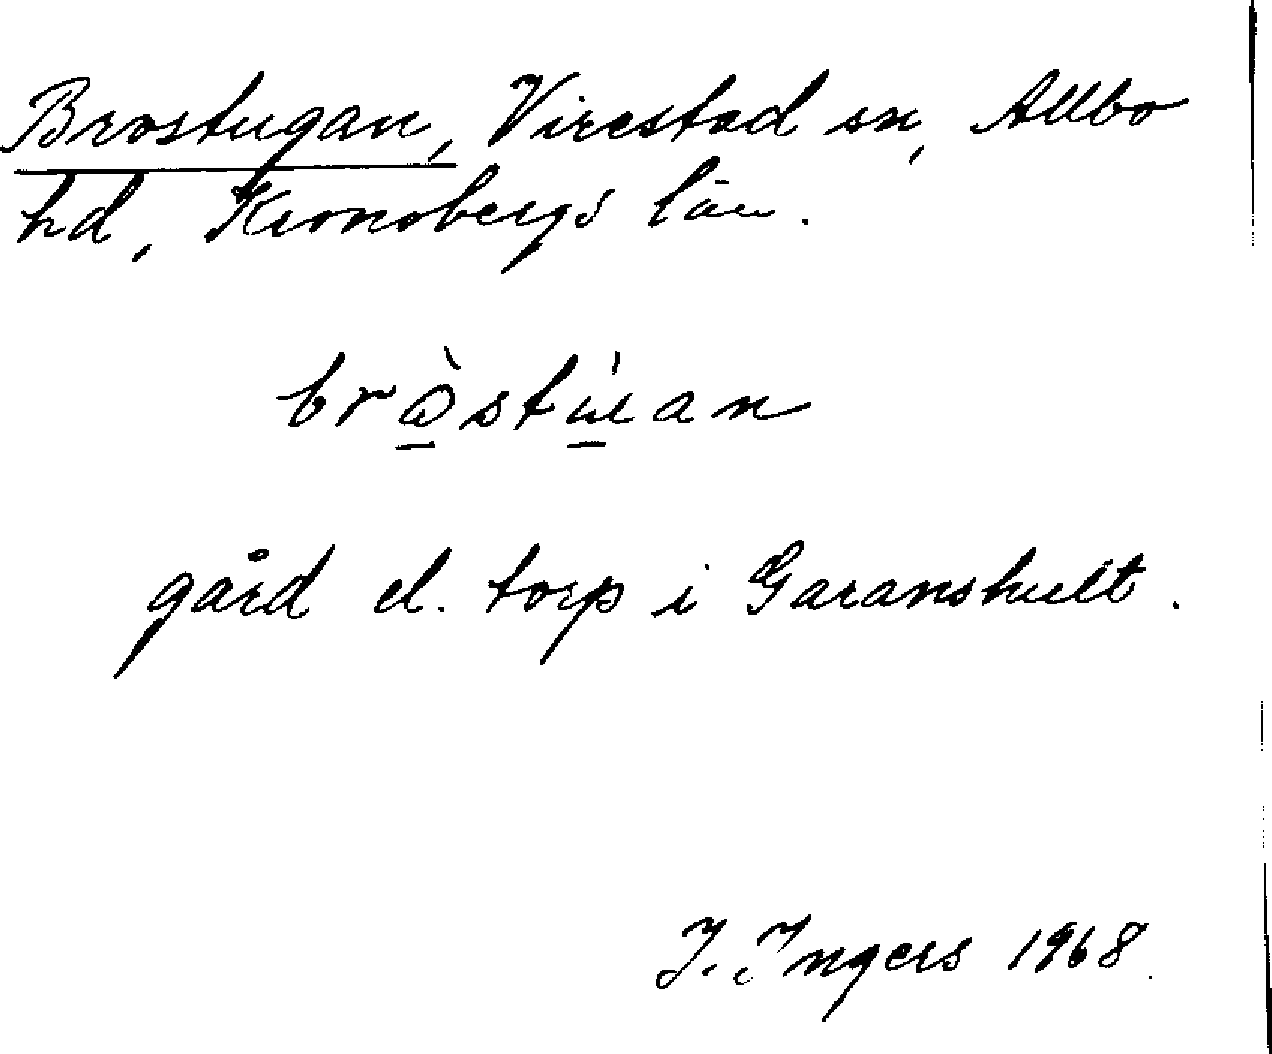 Brostugan, Virestad sn, Allbo
hd, Kronobergs län.
brɷ̠̀stɯ̠́an
gård el. torp i Garanshult.
I. Ingers 1968.